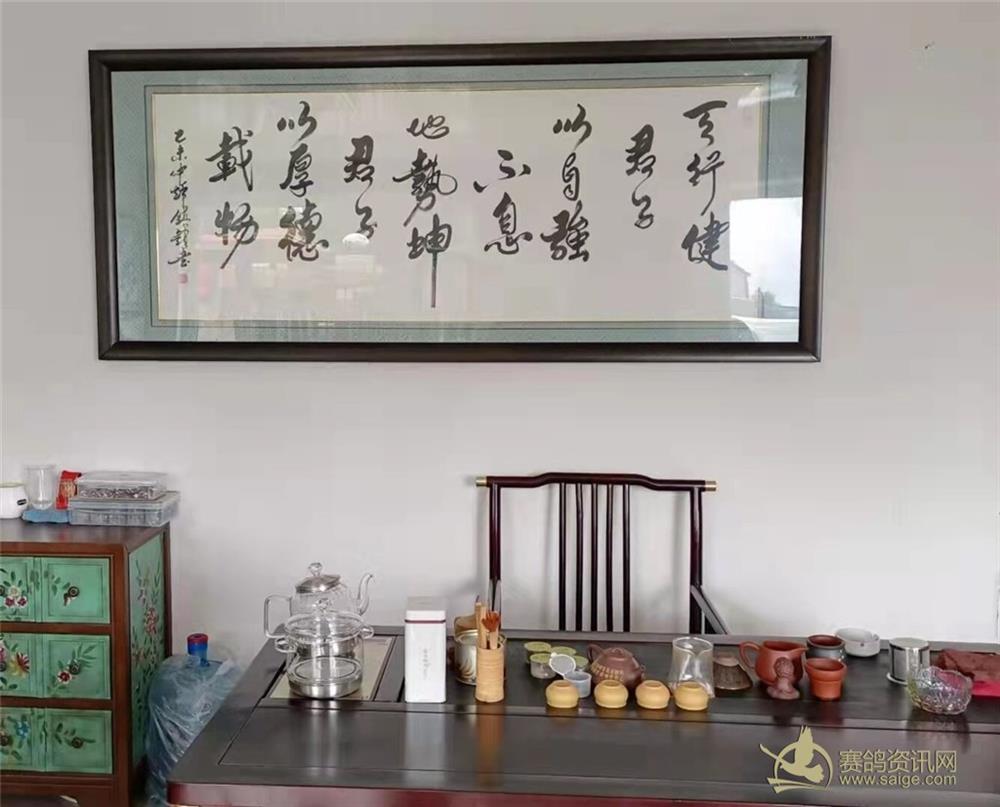 天行健
君子
以自強
不息
地勢坤
君子
以厚德
載物
赛鸽资讯网
www.saige.com